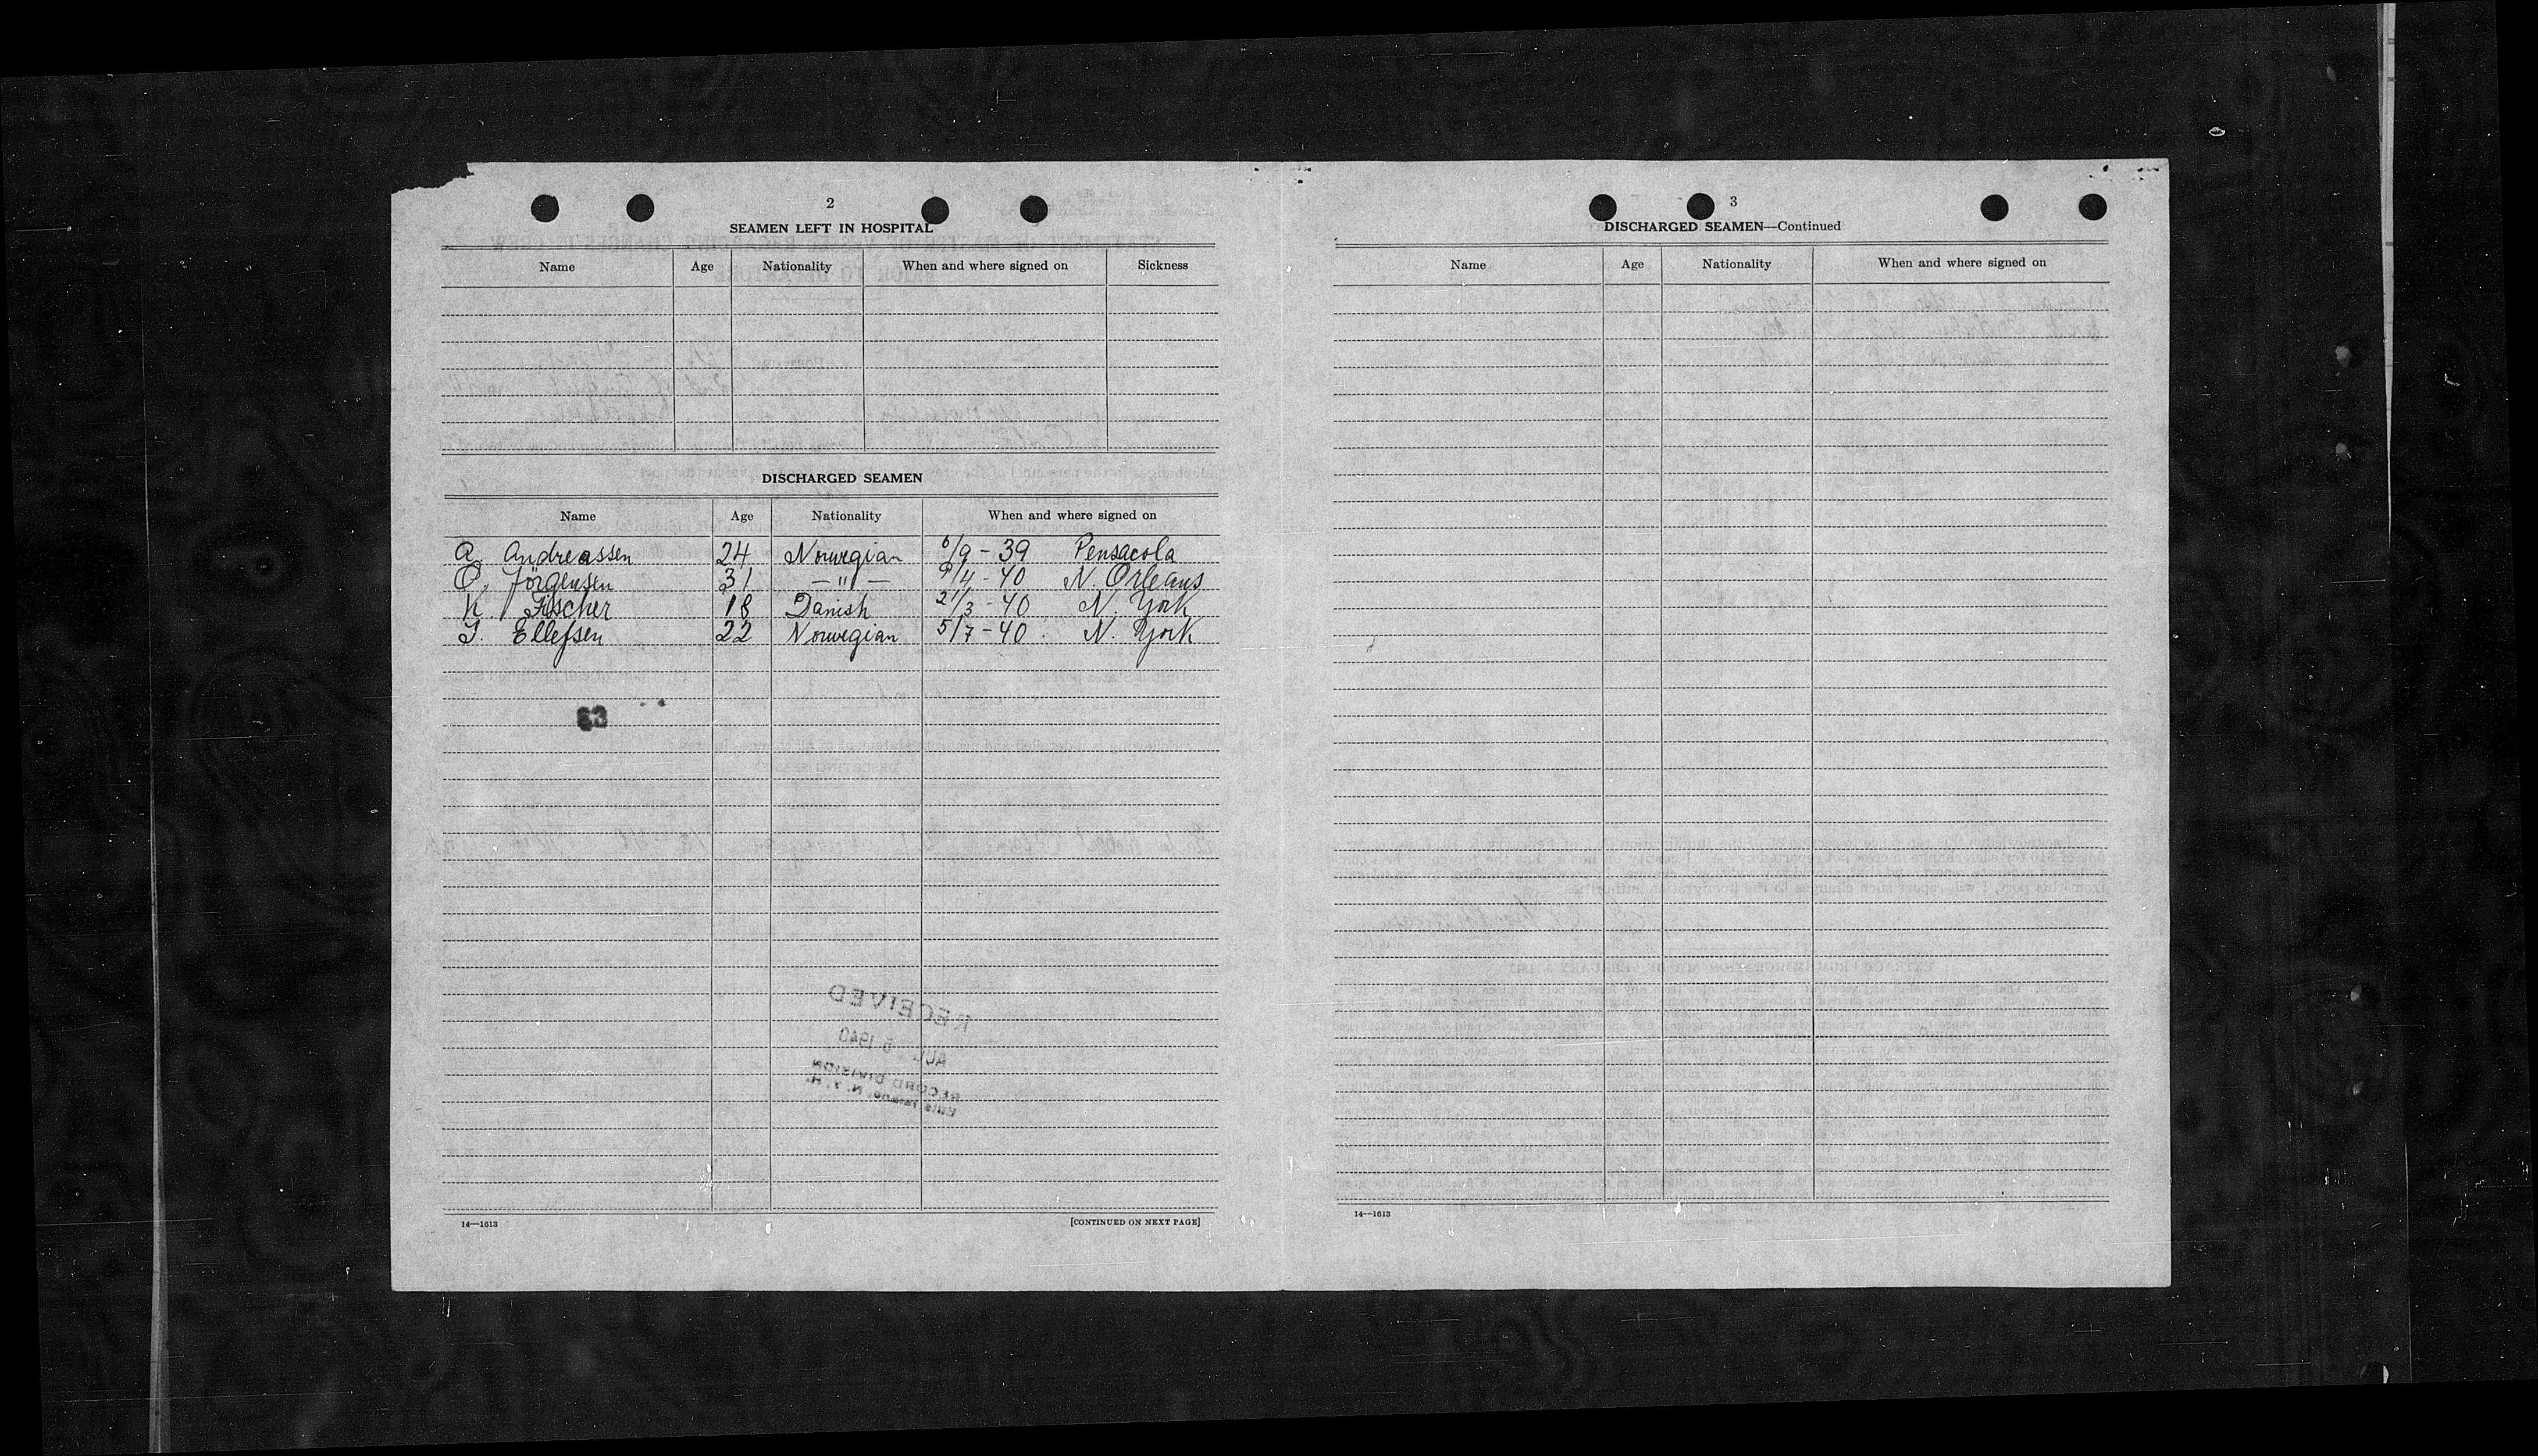 2
SEAMEN LEFT IN HOSPITAL
Name Age Nationality When and where signed on Sickness
DISCHARGED SEAMEN
Name Age Nationality When and where signed on
A. Andreassen 24 Norwegian 6/9 - 39 Pensacola
O. Jörgensen 31 — " — 9/4 - 40 N. Orleans
K. Fischer 18 Danish 21/3 - 40 N. York
J. Ellefsen 22 Norwegian 5/7 - 40. N. York
63
RECEIVED
AUG 5 1940
RECORD DIVISION
Ellis Island, N. Y. H.
14—1613 [CONTINUED ON NEXT PAGE]
3
DISCHARGED SEAMEN—Continued
Name Age Nationality When and where signed on
14—1613